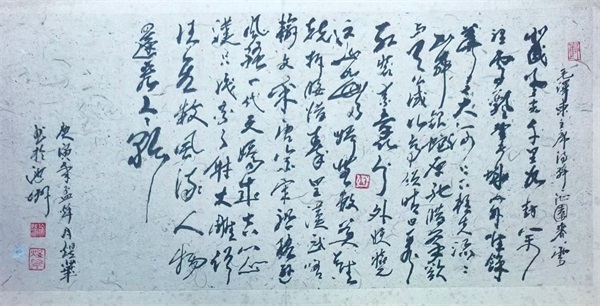 毛澤東主席詞抄沁園春雪
北國風光千里冰封萬
里雪飄望長城內外惟餘
莽莽大河上下頓失滔滔
山舞銀蛇原馳蠟象欲
與天公試比高須晴日看
紅裝素裹分外妖嬈
江山如此多嬌引無數英雄
競折腰惜秦皇漢武略
輸文采唐宗宋祖稍遜
風騷一代天驕成吉思汗
只識彎弓射大雕俱
往矣數風流人物
還看今朝
庚寅年孟秋月
書於